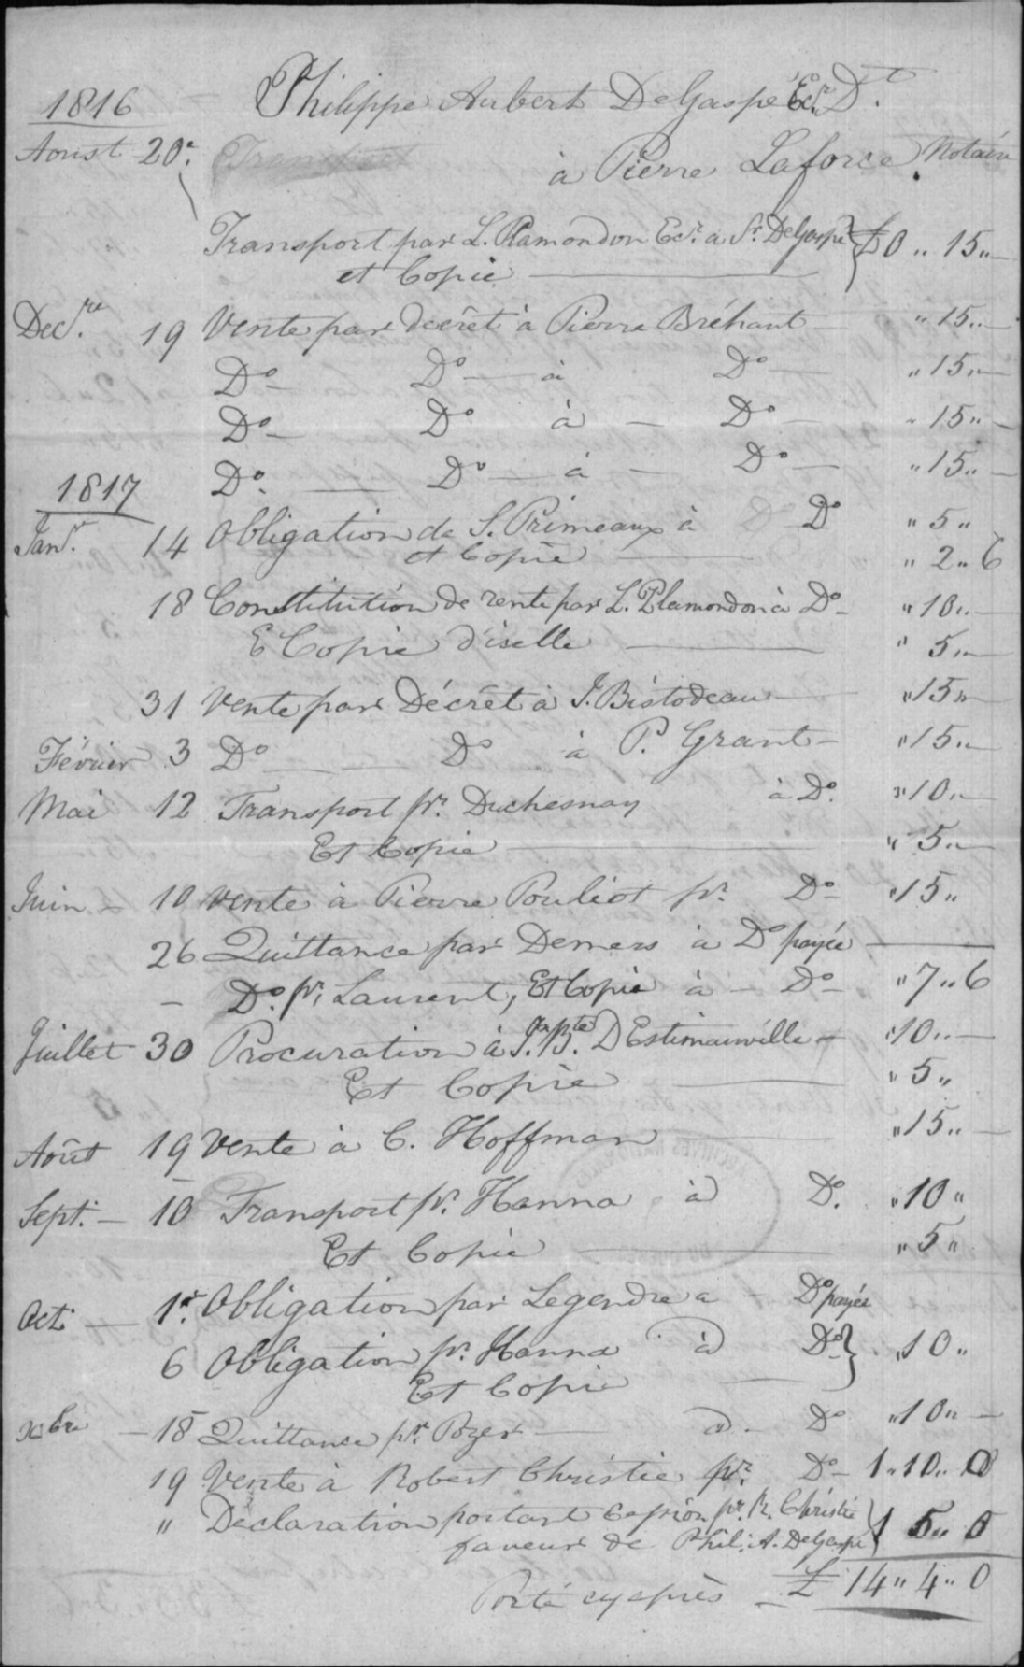 1816 Philippe Aubert DeGaspé Ecr. Dt.
Aoust 20. Transport
à Pierre Laforce, Notaire
Transport par L. Plamondon Ecr. a Sr. DeGaspé } £0 „ 15 „ —
et Copie —
Decre. 19 Vente par decrêt à Pierre Bréhaut „ 15 „ —
Do — Do — à Do — „ 15 „ —
Do — Do à — Do — „ 15 „ —
Do. — Do — à — Do — „ 15 „ —
1817
Janr. 14 Obligation de S. Primeaux à Do „ 5 „
et Copie — „ 2 „ 6
18 Constitution de rente par L. Plamondon à Do — „ 10 „ —
E Copie d'icelle — „ 5 „ —
31 Vente par Décrêt à J. Bistodeau — „ 15 „ —
Février 3 Do — Do à P. Grant — „ 15 „ —
Mai 12 Transport pr. Duchesnay à Do. „ 10 „ —
Et Copie — „ 5 „ —
Juin — 10 Vente à Pierre Pouliot pr. Do — „ 15 „
26 Quittance par Demers à Do payée —
— Do. pr. Laurent, Et Copie à — Do — „ 7 „ 6
Juillet 30 Procuration à J. Bpte. DEstimauville — „ 10 „ —
Et Copie — „ 5 „
Août 19 Vente à C. Hoffman — „ 15 „ —
Sept. — 10 Transport pr. Hanna à Do. „ 10 „
Et Copie — „ 5 „
Oct. — 1r. Obligation par Legendre a — Do payée
6 Obligation pr. Hanna à Do } „ 10 „
Et Copie —
xbre — 18 Quittance pr. Pozer — a. Do „ 10 „ —
19 Vente à Robert Christie pr. Do — 1 „ 10 „ 0
„ Déclaration portant Cession pr. R. Christie } 1 5 „ 0
faveur de Phil: A. DeGaspé
Porté cy après — £ 14 „ 4 „ 0